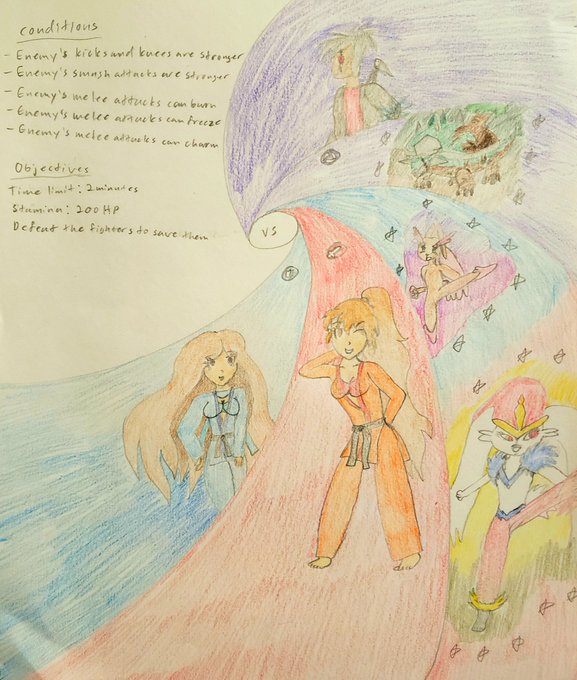 Conditions
- Enemy's kicks and knees are stronger
- Enemy's smash attacks are stronger
- Enemy's melee attacks can burn
- Enemy's melee attacks can freeze
- Enemy's melee attacks can charm
Objectives
Time limit: 2 minutes
Stamina: 200 HP
Defeat the fighters to save them
VS